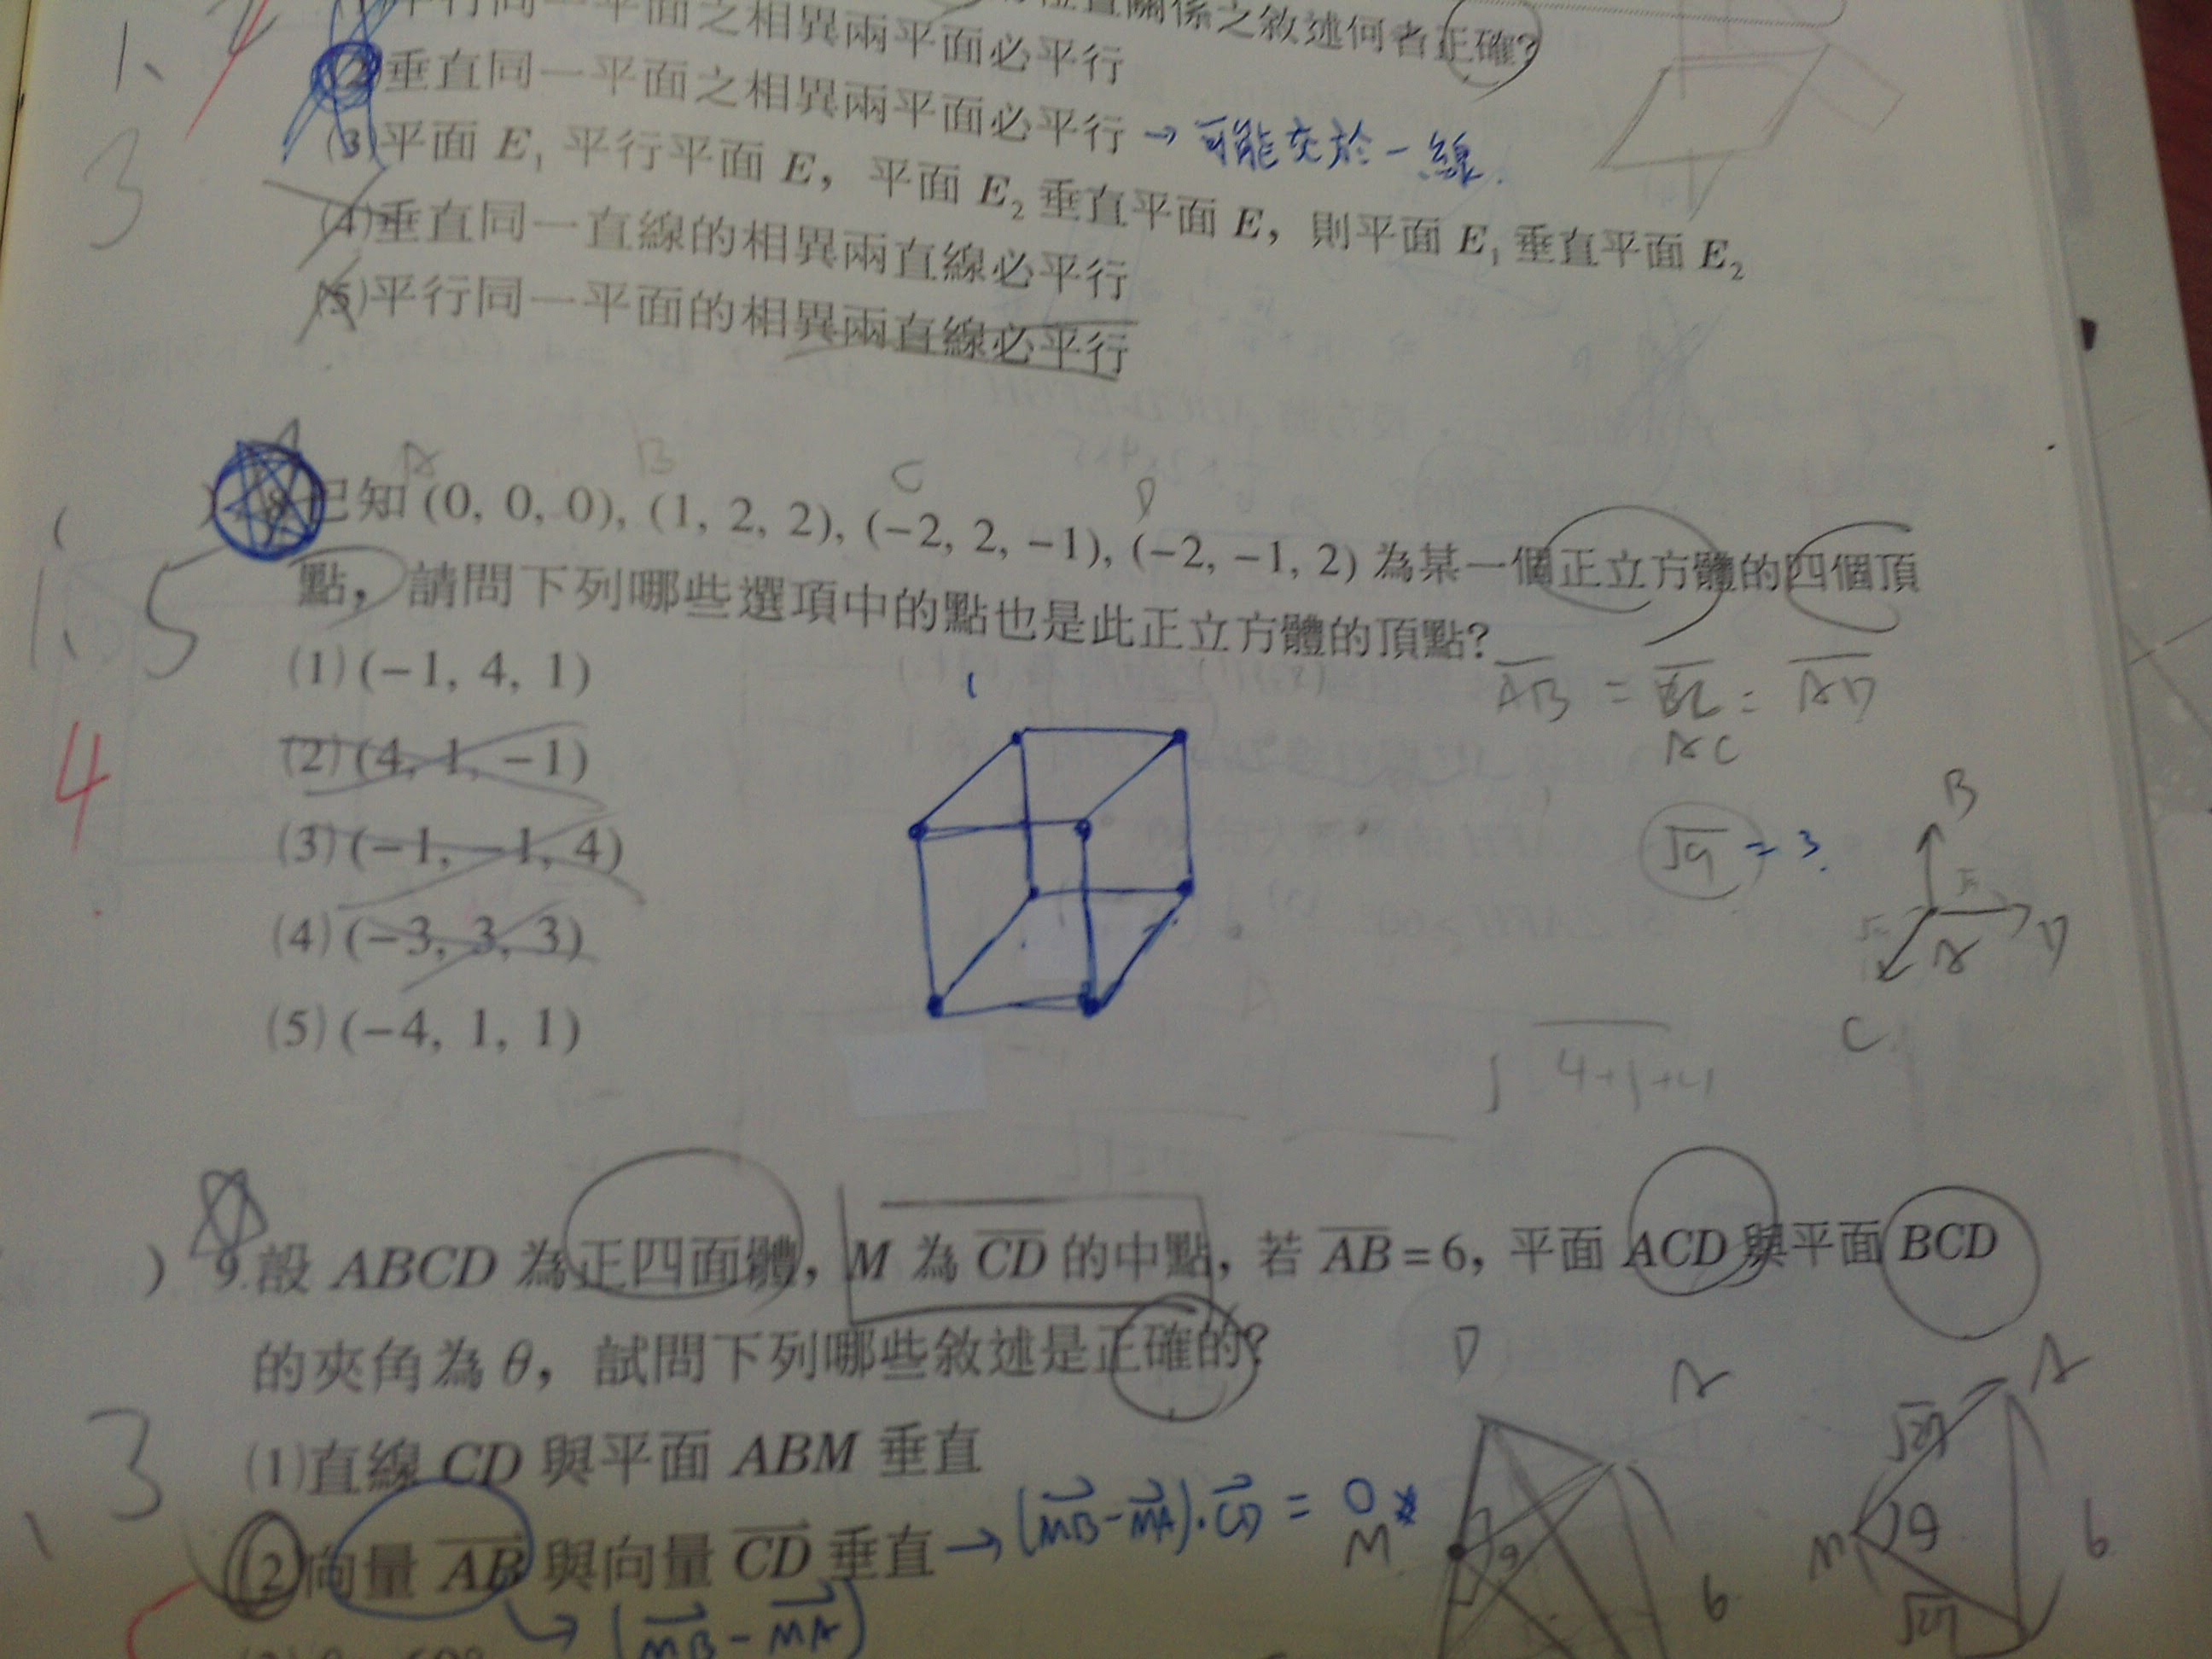 平行同一平面之相異兩平面必平行
位置關係之敘述何者正確?
1、
3
(2)垂直同一平面之相異兩平面必平行 → 可能交於一線.
(3)平面 E₁ 平行平面 E，平面 E₂ 垂直平面 E，則平面 E₁ 垂直平面 E₂
(4)垂直同一直線的相異兩直線必平行
(5)平行同一平面的相異兩直線必平行
A B C D
) 8.已知 (0, 0, 0), (1, 2, 2), (−2, 2, −1), (−2, −1, 2) 為某一個正立方體的四個頂
點，請問下列哪些選項中的點也是此正立方體的頂點?
1、5
4
(1) (−1, 4, 1)
(2) (4, 1, −1)
(3) (−1, −1, 4)
(4) (−3, 3, 3)
(5) (−4, 1, 1)
AB = = AD
AC
√9 = 3.
B
A D
C
√4+1+4
) 9.設 ABCD 為正四面體，M 為 CD 的中點，若 AB = 6，平面 ACD 與平面 BCD
的夾角為 θ，試問下列哪些敘述是正確的?
3
(1)直線 CD 與平面 ABM 垂直
(2)向量 AB 與向量 CD 垂直 → (MB − MA)·CD = 0
→ (MB − MA)
D A
M θ
6
A
√27
M θ 6
√27